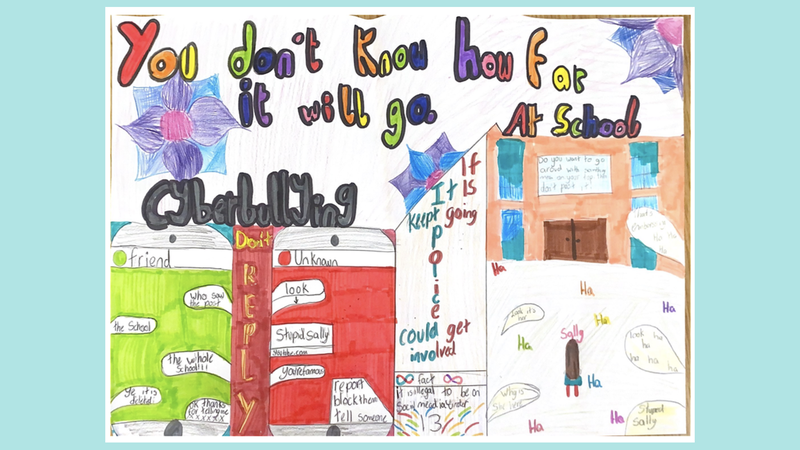 You don't Know how far
it will go.
At School
Cyberbullying
friend
who saw
the post
the School
the whole
School!!!
ye it is
deleted
ok thanks
for telling me
xxxxxx
Don't
REPLY
Unknown
look
Stupid Sally
youre famous
report
block them
tell someone
If
It IS
Keept going
It police
could get
involved
Fact
it is illegal to be on
Social media under
13
Do you want to go
around with
on your
don't post it!
Ha
Ha
Ha
Ha
Ha
Ha
Ha
Ha
Look it's
her
look
ha
ha ha ha
Sally
Why is
She here
Stupid
Sally